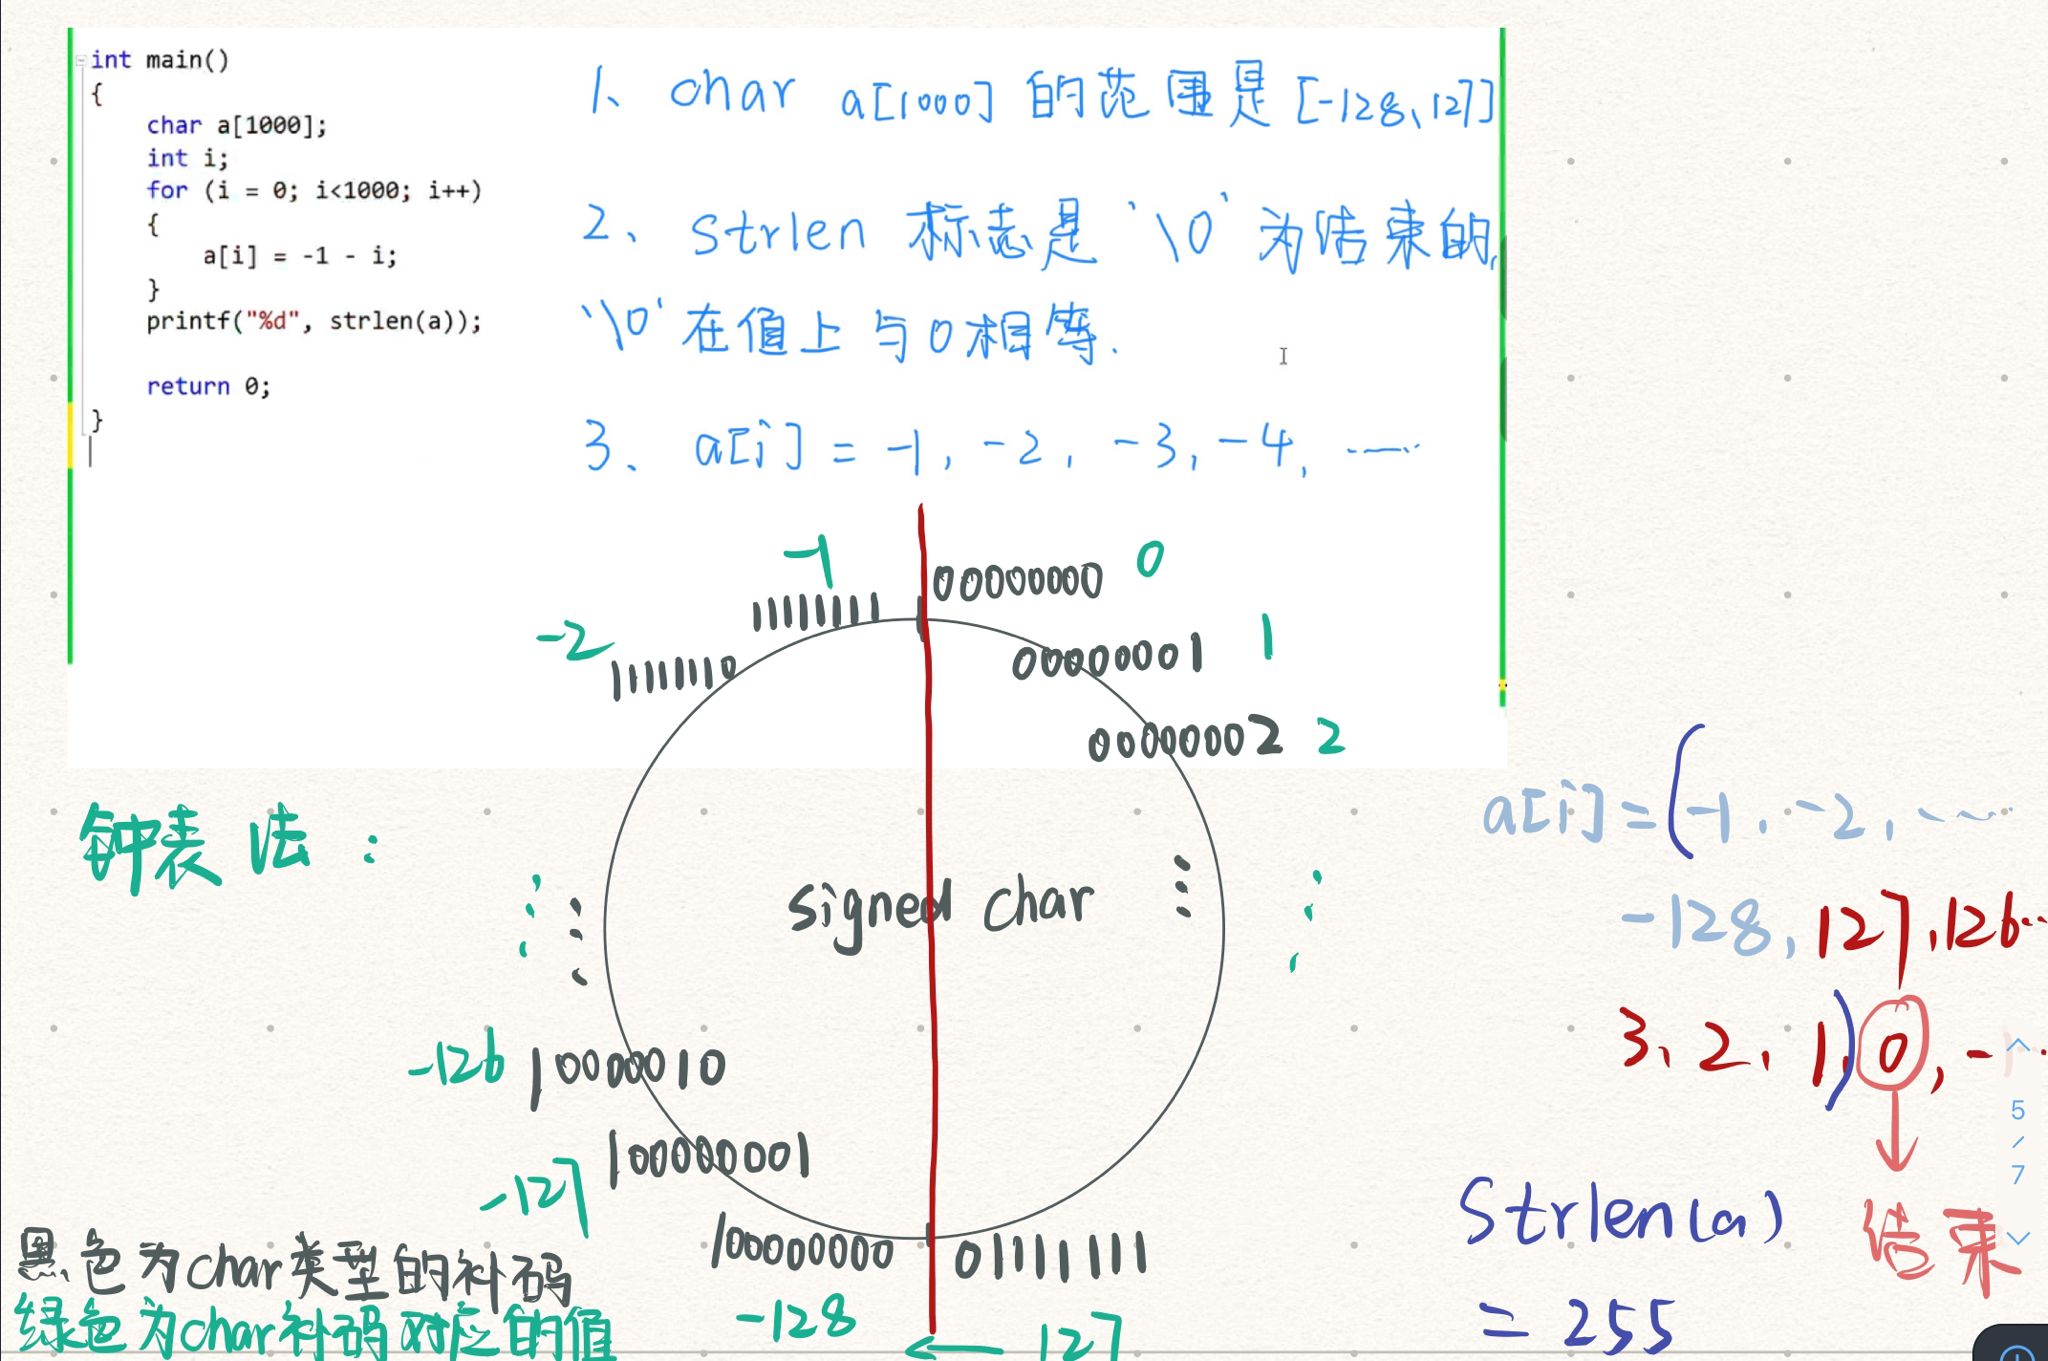 int main()
{
char a[1000];
int i;
for (i = 0; i<1000; i++)
{
a[i] = -1 - i;
}
printf("%d", strlen(a));
return 0;
}
1、char a[1000] 的范围是 [-128、127]
2、strlen 标志是'\0'为结束的,
'\0'在值上与0相等.
3、a[i] = -1, -2, -3, -4, ……
-1
11111111
00000000 0
-2
11111110
00000001 1
00000002 2
钟表法：
signed char
-126 10000010
-127 100000001
100000000
-128
01111111
← 127
黑色为char类型的补码
绿色为char补码对应的值
a[i]=(-1、-2、……
-128、127、126…
3、2、1)0,-1…
结束
Strlen(a)
= 255
5
/
7